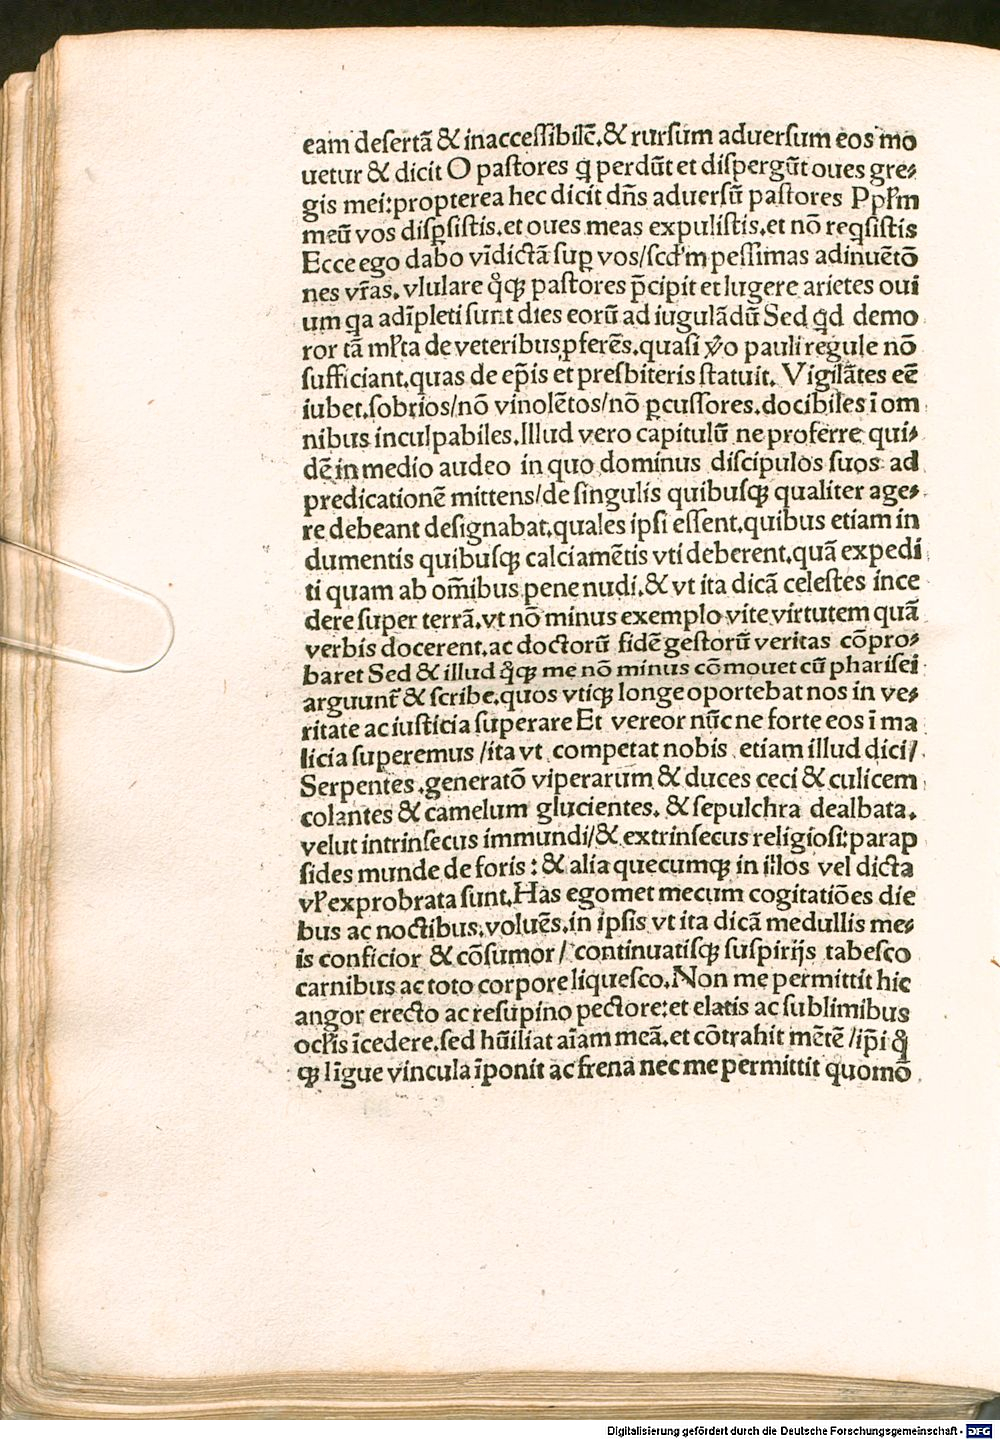 eam desertā & inaccessibilē.& rursum aduersum eos mo
uetur & dicit O pastores q̄ perdūt et dispergūt oues gre⸗
gis mei:propterea hec dicit dn̄s aduersū pastores Ppl̄m
meū vos disp̱sistis.et oues meas expulistis.et nō reqsistis
Ecce ego dabo vīdictā sup̱ vos/scd'm pessimas adinuētō
nes vr̄as. vlulare q̊qꝫ pastores p̄cipit et lugere arietes oui
um qa adīpleti sunt dies eorū ad iugulādū Sed qͥd demo
ror tā ml̄ta de veteribus ꝓferēs.quasi ꝟo pauli regule nō
sufficiant.quas de ep̄is et presbiteris statuit. Vigilātes eē
iubet.sobrios/nō vinolētos/nō ꝑcussores.docibiles ī om
nibus inculpabiles.Illud vero capitulū ne proferre qui⸗
dē in medio audeo in quo dominus discipulos suos ad
predicationē mittens/de singulis quibusqꝫ qualiter age⸗
re debeant designabat.quales ipsi essent.quibus etiam in
dumentis quibusqꝫ calciamētis vti deberent.quā expedi
ti quam ab om̄ibus pene nudi.& vt ita dicā celestes ince
dere super terrā.vt nō minus exemplo vite virtutem quā
verbis docerent.ac doctorū fidē gestorū veritas cōpro⸗
baret Sed & illud q̊qꝫ me nō minus cōmouet cū pharisei
arguunt̄ & scribe.quos vtiqꝫ longe oportebat nos in ve⸗
ritate ac iusticia superare Et vereor nūc ne forte eos ī ma
licia superemus /ita vt competat nobis etiam illud dici/
Serpentes .generatō viperarum & duces ceci & culicem
colantes & camelum glucientes. & sepulchra dealbata.
velut intrinsecus immundi/& extrinsecus religiosi:parap
sides munde de foris : & alia quecumqꝫ in illos vel dicta
vl̄ exprobrata sunt.Has egomet mecum cogitatiōes die
bus ac noctibus.voluēs.in ipsis vt ita dicā medullis me⸗
is conficior & cōsumor/ continuatisqꝫ suspirijs tabesco
carnibus ac toto corpore liquesco.Non me permittit hic
angor erecto ac resupino pectore:et elatis ac sublimibus
ocl̄is īcedere.sed hūiliat aīam meā.et cōtrahit mētē /ip̄i q̊
qꝫ līgue vincula īponit ac frena nec me permittit quomō
Digitalisierung gefördert durch die Deutsche Forschungsgemeinschaft - DFG